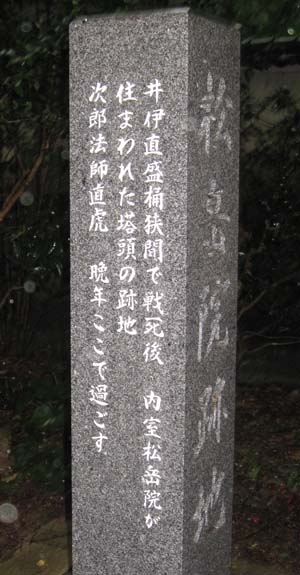 松岳院跡地
井伊直盛桶狭間で戦死後　内室松岳院が
住まわれた塔頭の跡地
次郎法師直虎　晩年ここで過ごす